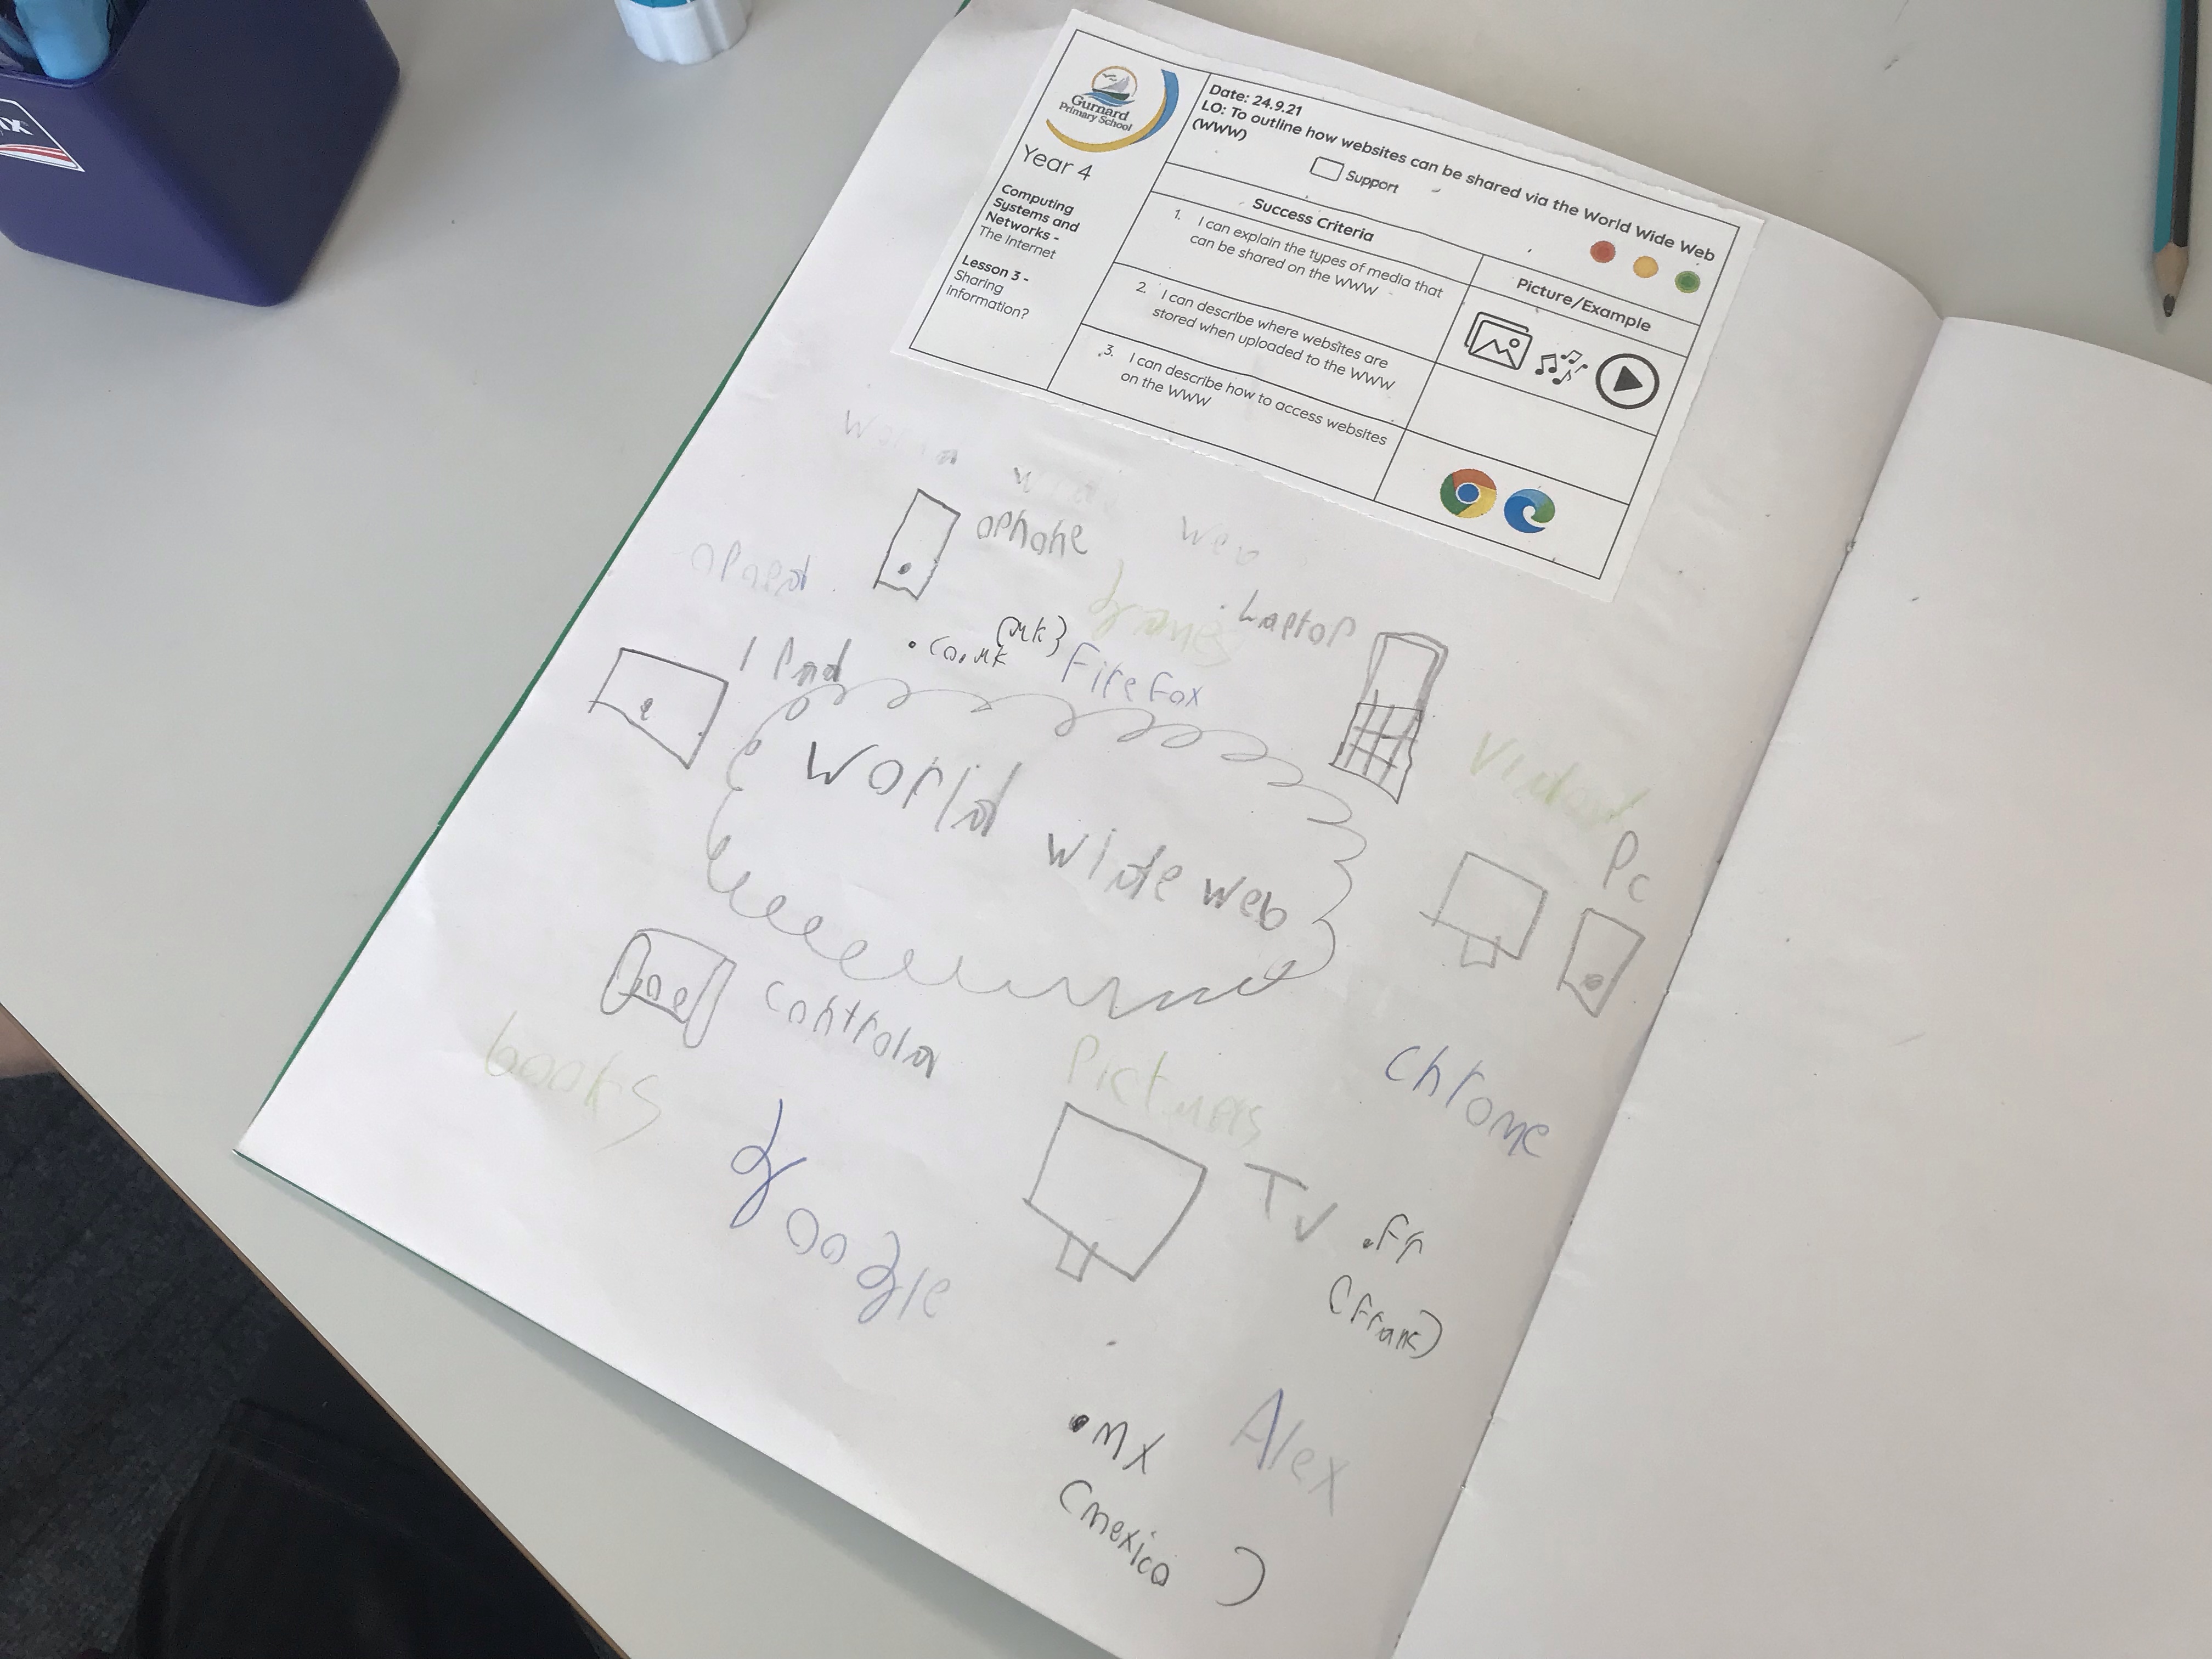 Gurnard
Primary School
Year 4
Computing
Systems and
Networks -
The Internet
Lesson 3 -
Sharing
information?
Date: 24.9.21
LO: To outline how websites can be shared via the World Wide Web
(WWW)
Support
Success Criteria
Picture/Example
1. I can explain the types of media that
can be shared on the WWW
2. I can describe where websites are
stored when uploaded to the WWW
3. I can describe how to access websites
on the WWW
web
aphone
games
Laptop
.co.uk
(uk)
Firefox
I Pad
World
wide web
Pc
controla
books
Pictures
chrome
google
TV
.Fr
(frank)
Alex
.mx
(mexico)